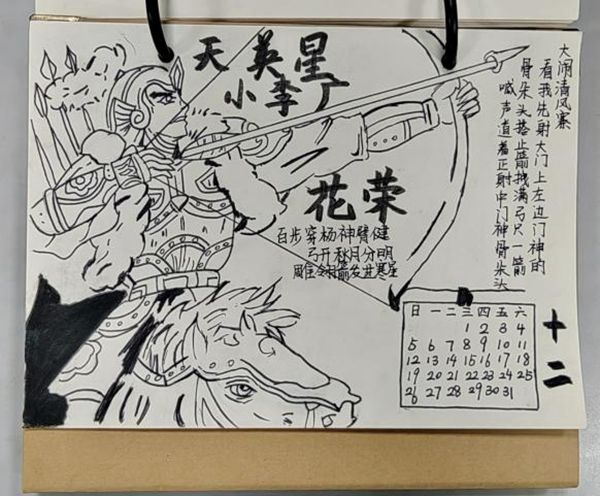 天英星
小李广
花荣
百步穿杨神臂健
弓开秋月分明
雕翎箭发迸寒星
大闹清风寨
看我先射大门上左边门神的
骨朵头搭上箭拽满弓只一箭
喊声道着正射中门神骨朵头
十二
日 一 二 三 四 五 六
1 2 3 4
5 6 7 8 9 10 11
12 13 14 15 16 17 18
19 20 21 22 23 24 25
26 27 28 29 30 31